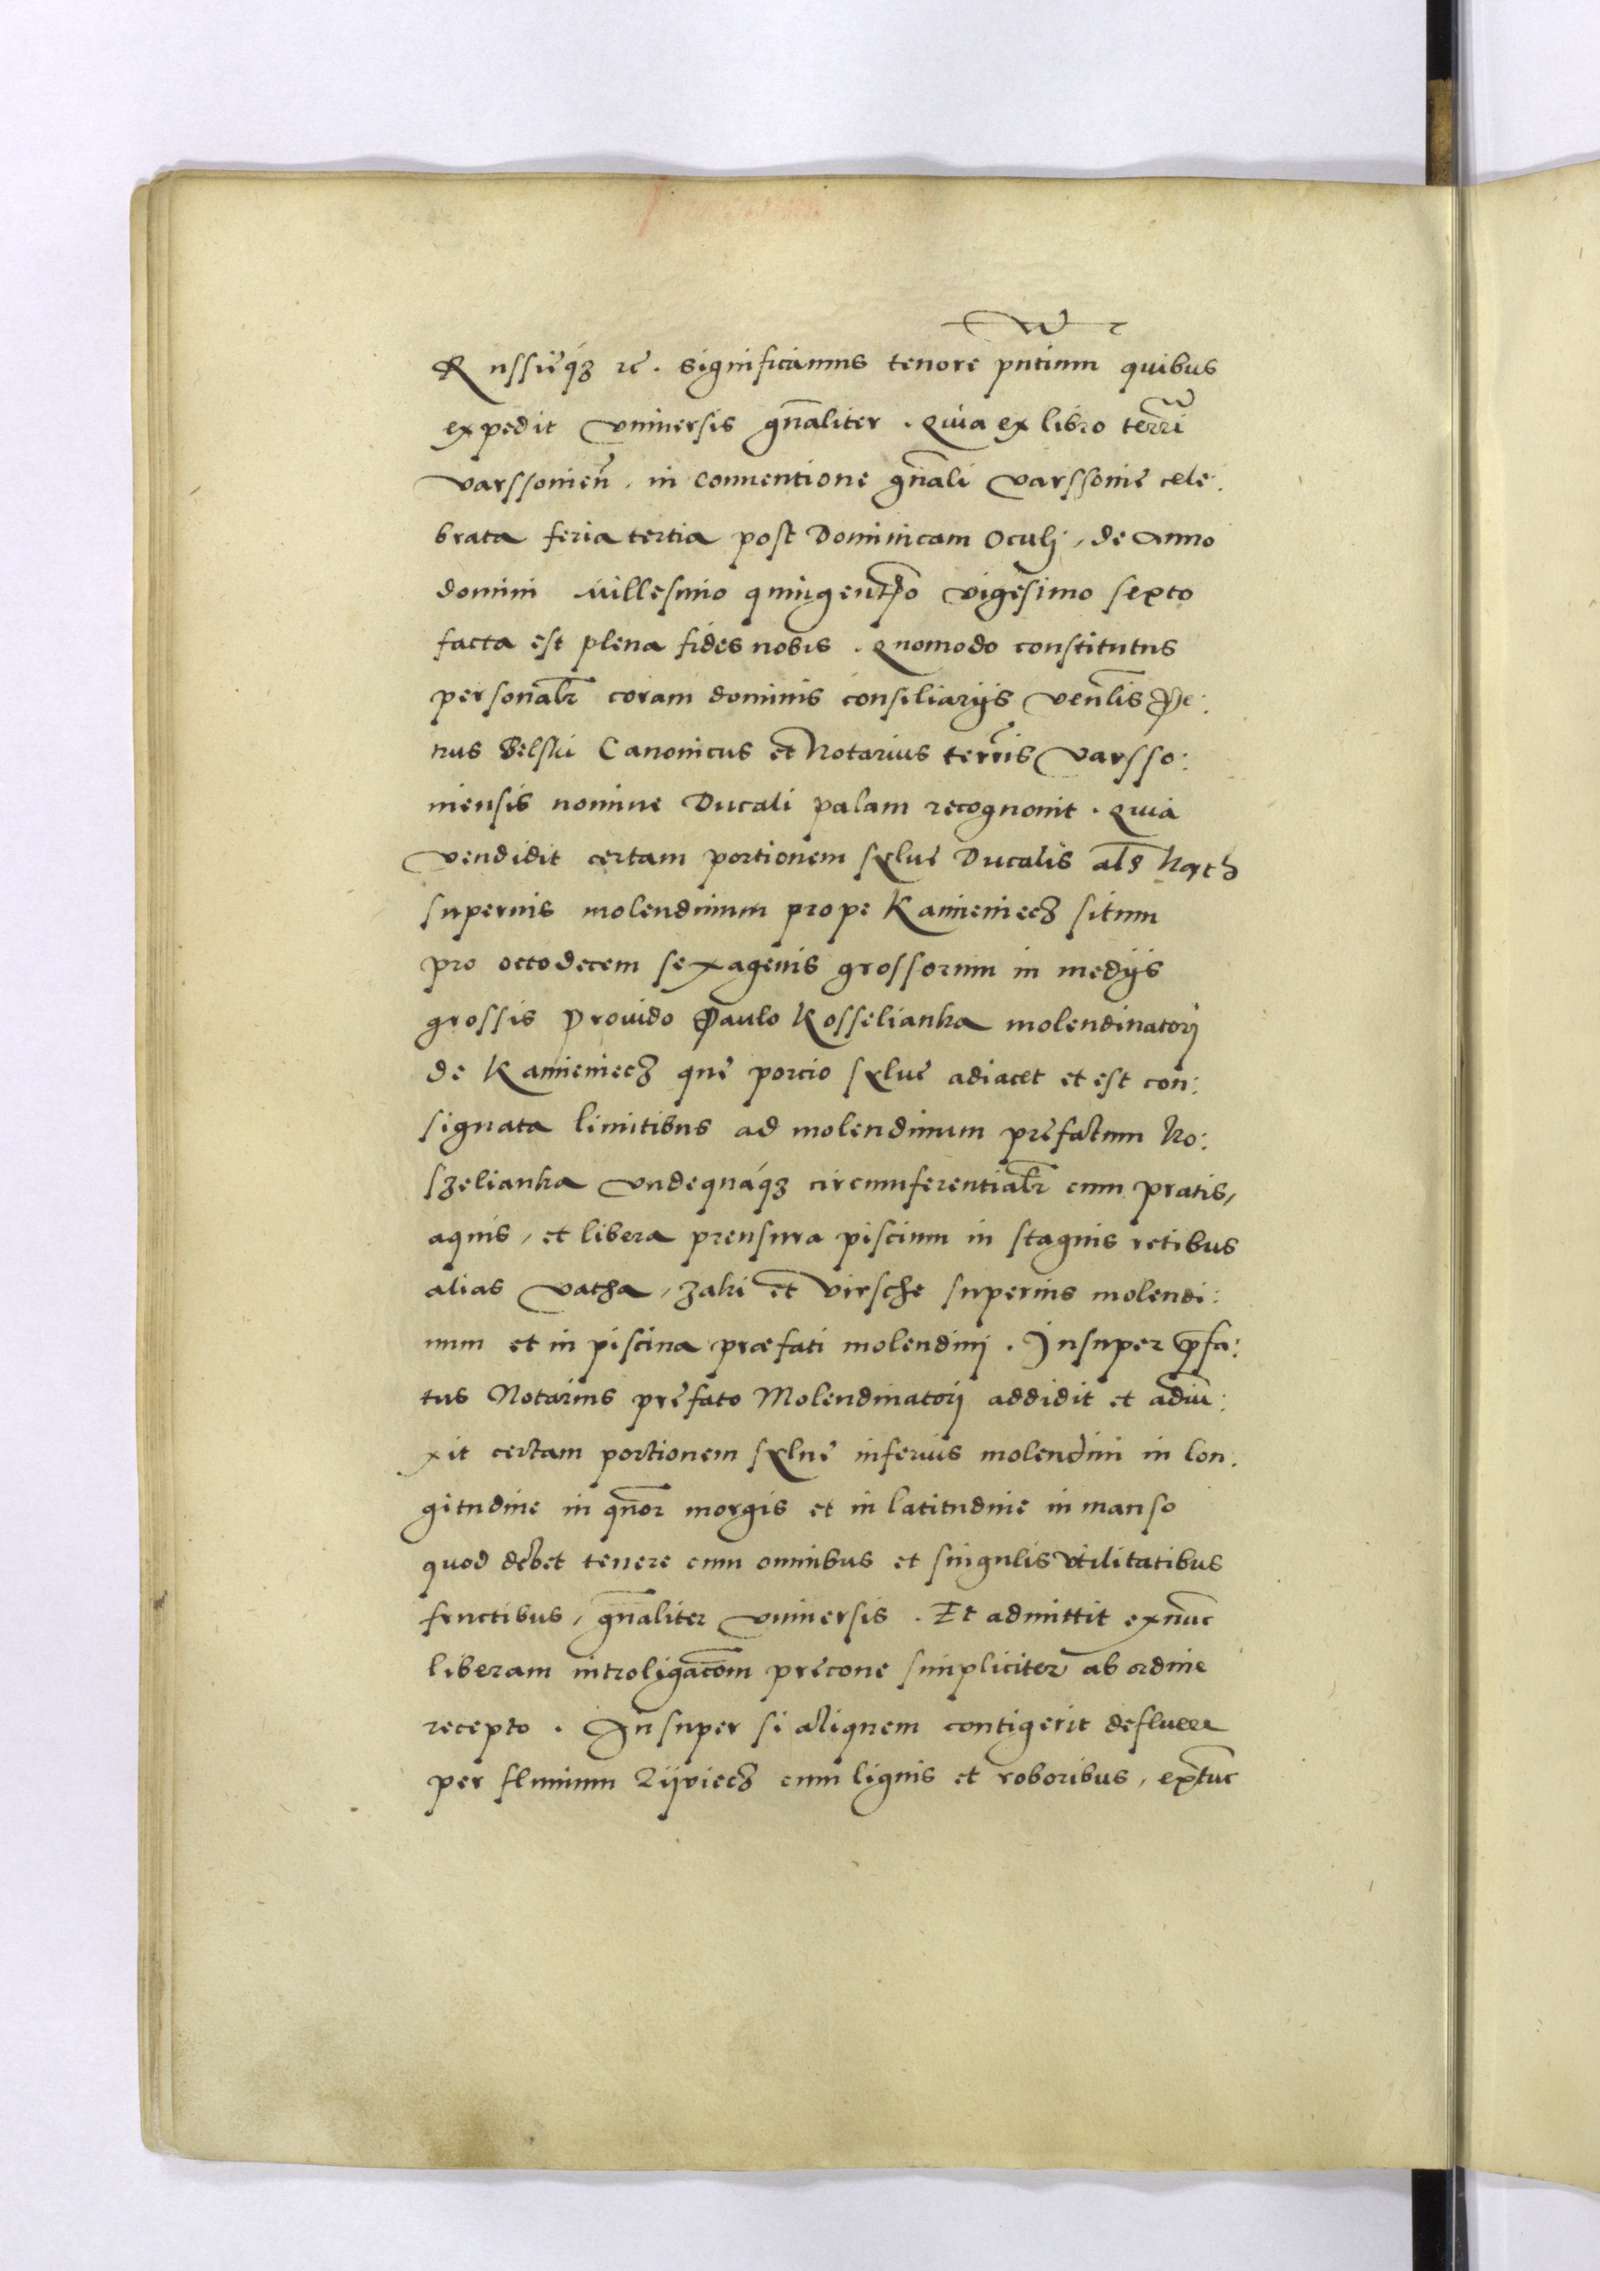 Russieqȝ ꝛc̄. significamus tenore pn̄tium quibus
expedit vniuersis gn̄aliter. Quia ex libro terr̄i
varssonien̄. in conuentione gn̄ali varssonię cele:
brata feria tertia post Dominicam Oculj, de Anno
domini Millesimo quingentesimo vigesimo sexto
facta est plena fides nobis. Quomodo constitutus
personalr̄ coram dominis consiliarijs ven̄lis Pe:
trus Belski Canonicus et Notarius terr̄is varsso:
niensis nomine Ducali palam recognouit. Quia
vendidit certam portionem syluę Ducalis al̄s
superius molendinum prope Kamieniecȝ situm
pro octodecem sexagenis grossorum in medijs
grossis Prouido Paulo Kosselianka molendinatorj
de Kamieniecȝ quę porcio syluę adiacet et est con:
signata limitibus ad molendinum pręfatum Ko:
sȝelianka vndequáqȝ circumferentialr̄ cum pratis,
aquis, et libera prensura piscium in stagnis retibus
alias vatha, ȝaki et virsche superius molendi:
num et in piscina præfati molendinj. Insuper p̄fa:
tus Notarius pręfato Molendinatorj addidit et adiu̅:
xit certam portionem syluę inferius molendini in lon:
gitudine in qu̅or morgis et in latitudine in manso
quod debet tenere cum omnibus et singulis vtilitatibus
fructibus, gn̄aliter vniuersis. Et admittit exnunc
liberam introligac̄om pręcone simpliciter ab ordine
recepto. Insuper si aliquem contigerit defluere
per fluuium cum lignis et roboribus, extunc